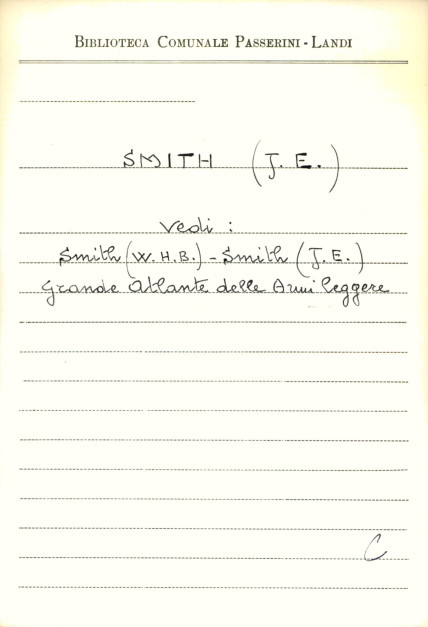 BIBLIOTECA COMUNALE PASSERINI - LANDI
SMITH (J. E.)
Vedi :
Smith (W. H. B.) - Smith (J. E.)
Grande Atlante delle Armi leggere
C